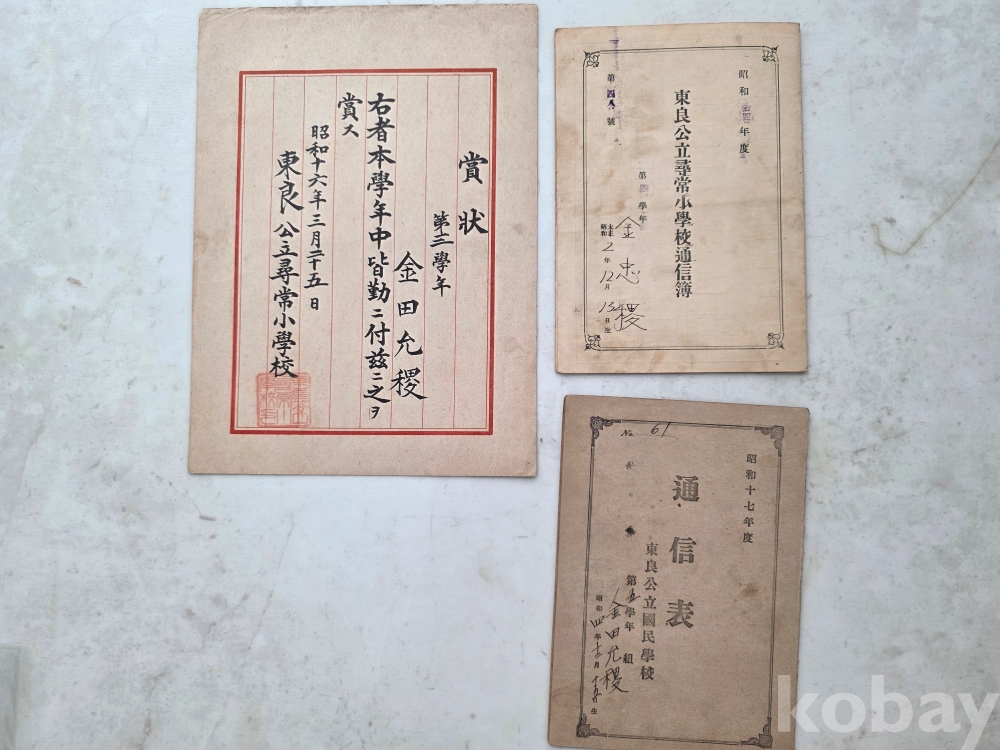 賞狀
第三學年
金田允稷
右者本學年中皆勤ニ付茲ニ之ヲ
賞ス
昭和十六年三月二十五日
東良公立尋常小學校
昭和 年度
東良公立尋常小學校通信簿
第四八號
第四學年
金忠稷
大正
昭和 2年12月15日生
昭和十七年度
通信表
東良公立國民學校
第五學年 組
金田允稷
昭和四年 月十五日生
No 61
kobay